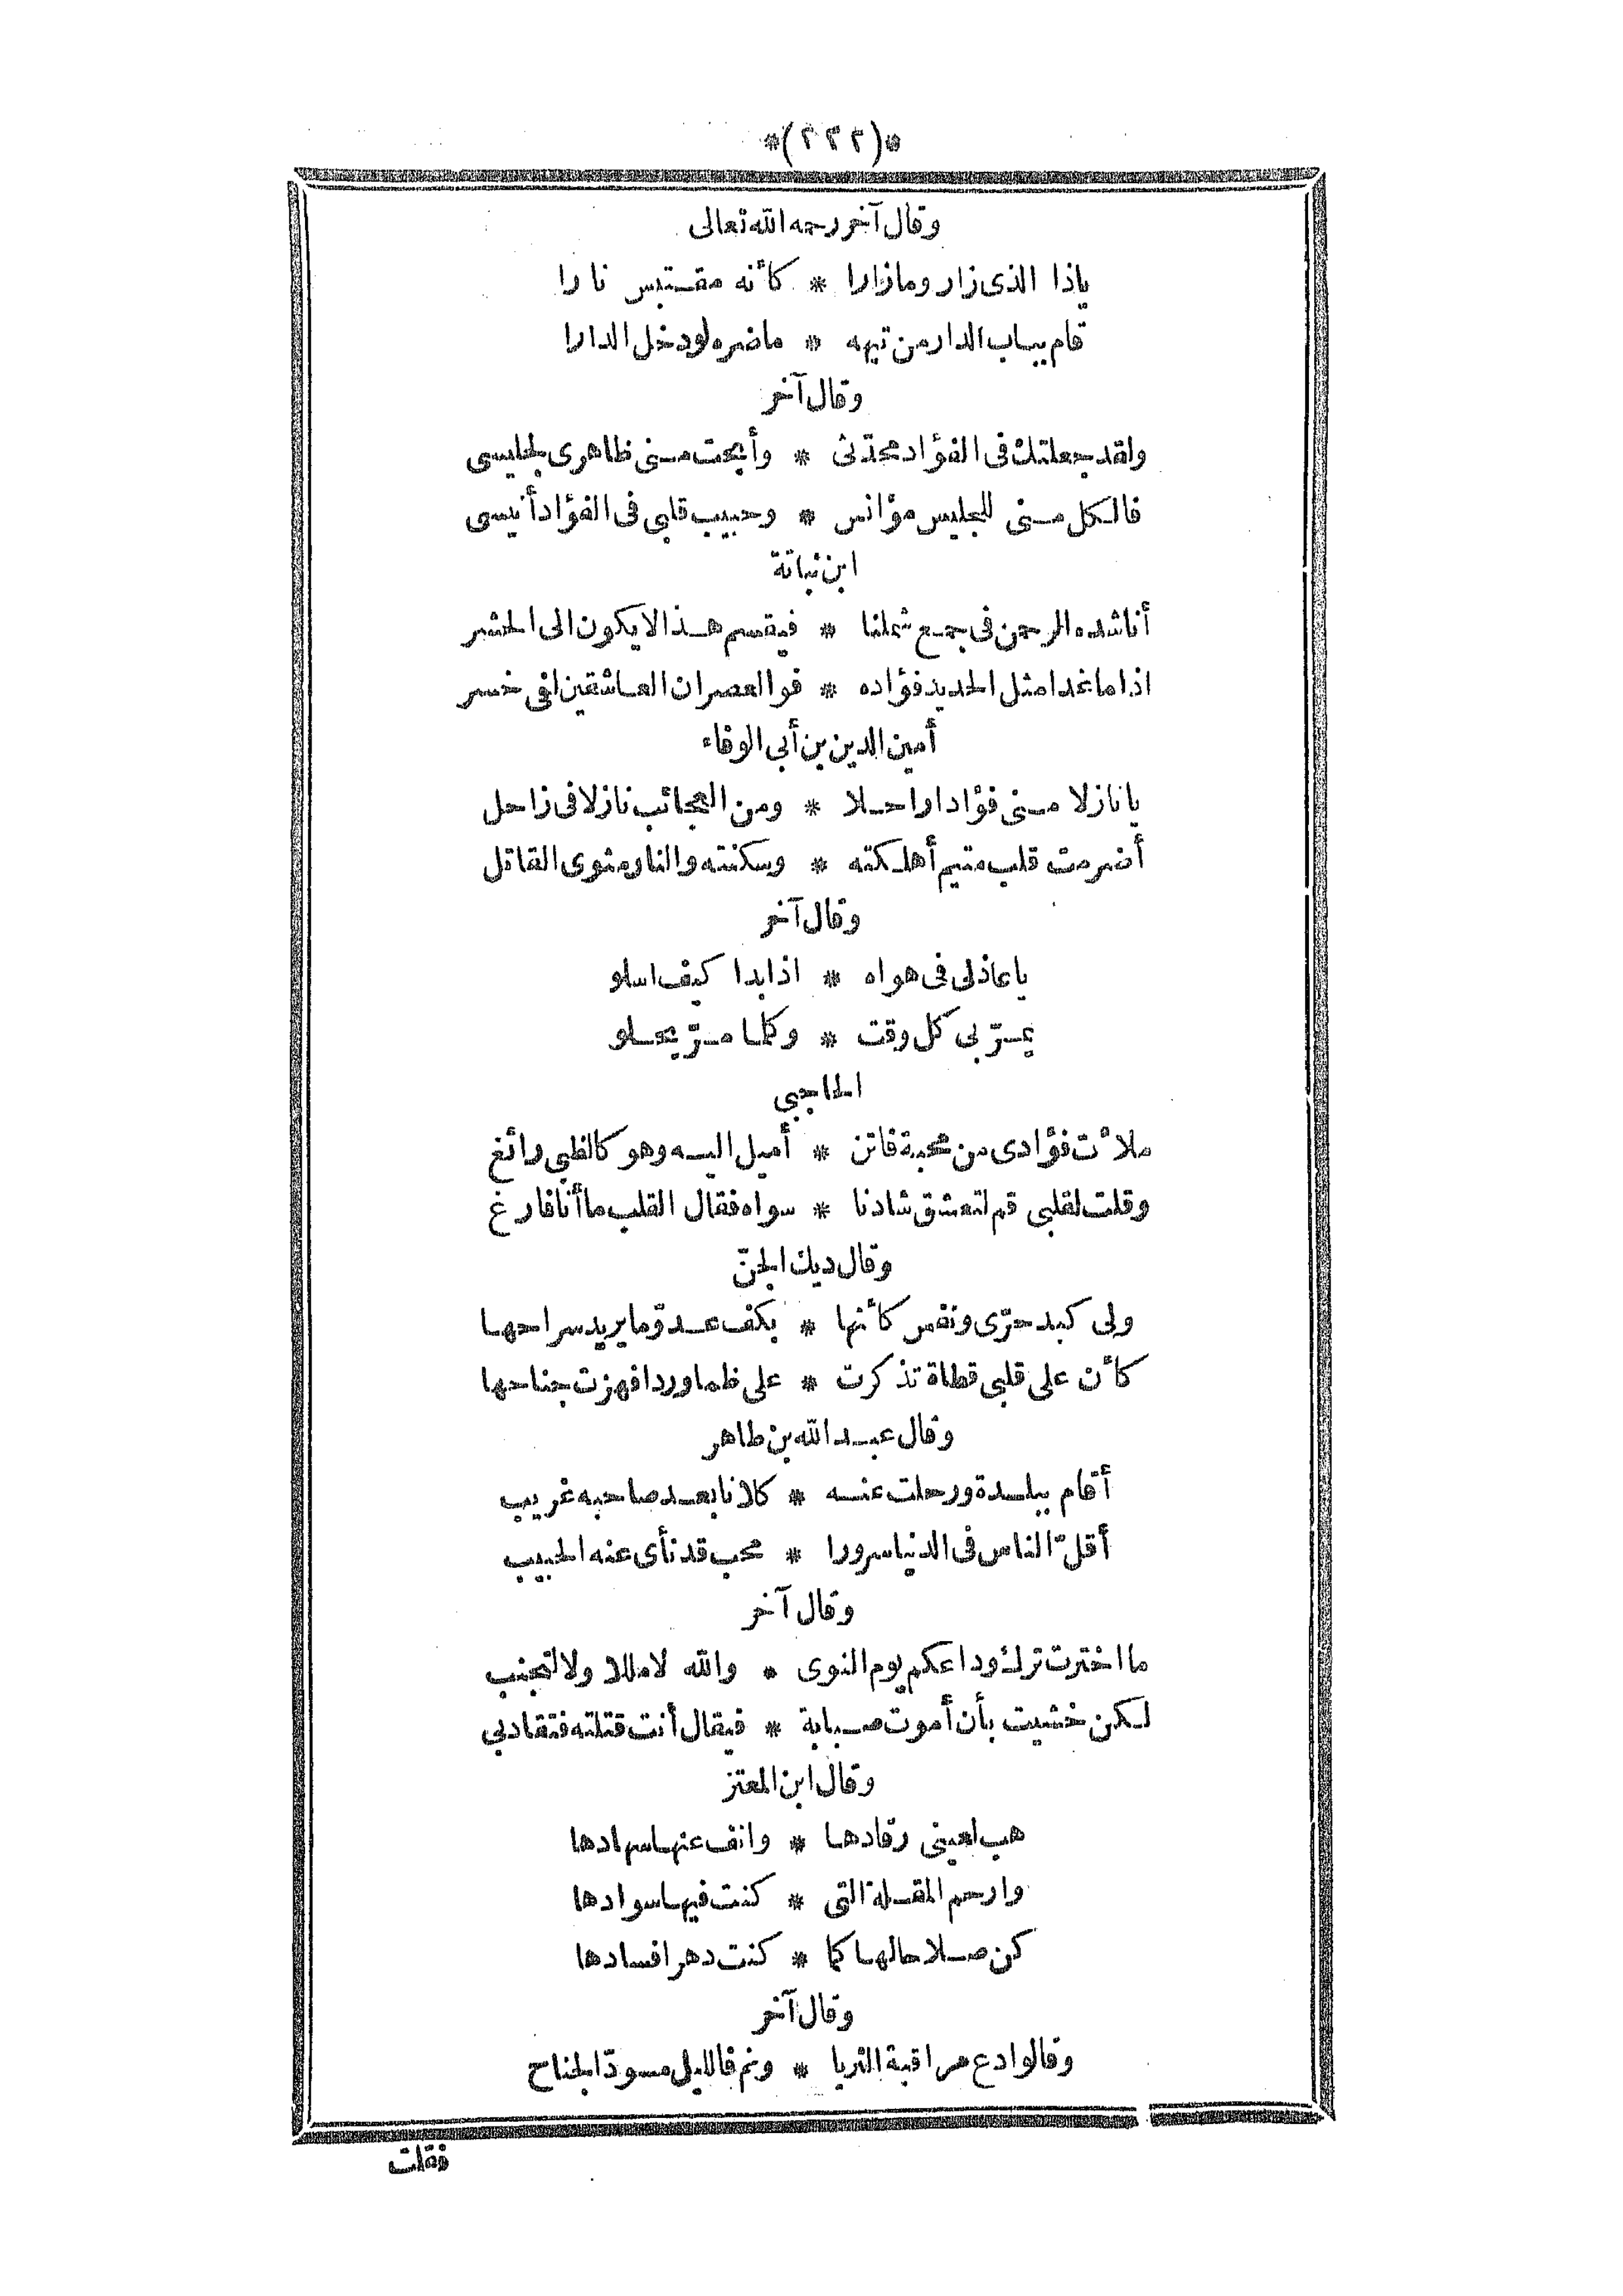 *(٢٢٢)*
وقال آخر رحمه الله تعالى
ياذا الذى زار وما زارا * كأنه مقتبس نارا
قام بباب الدار من تيهه * ما ضره لو دخل الدارا
وقال آخر
ولقد جعلتك فى الفؤاد محدّثى * وأبحت منى ظاهرى لجليسى
فالكل منى للجليس مؤانس * وحبيب قلبى فى الفؤاد أنيسى
ابن نباتة
أناشده الرحمن فى جمع شملنا * فيقسم هذا لا يكون الى الحشر
اذا ما غدا مثل الحديد فؤاده * فوالعصر ان العاشقين لفى خسر
أمين الدين بن أبى الوفاء
يا نازلا منى فؤادا راحلا * ومن العجائب نازلا فى زاحل
أضرمت قلب متيم أهلكته * وسكنته والنار مثوى القاتل
وقال آخر
يا عاذلى فى هواه * اذا بدا كيف اسلو
يمرّ بى كل وقت * وكلما مرّ يحلو
الحاجبى
ملأت فؤادى من محبة فاتن * أميل اليه وهو كالظبى رائغ
وقلت لقلبى قم لتعشق شادنا * سواه فقال القلب ما أنا فارغ
وقال ديك الجنّ
ولى كبد حرّى ونفس كأنها * بكف عدوّ ما يريد سراحها
كأن على قلبى قطاة تذكرت * على ظما وردا فهزت جناحها
وقال عبد الله بن طاهر
أقام ببلدة ورحلت عنه * كلانا بعد صاحبه غريب
أقلّ الناس فى الدنيا سرورا * محب قد نأى عنه الحبيب
وقال آخر
ما اخترت ترك وداعكم يوم النوى * والله لا مللا ولا لتجنب
لكن خشيت بأن أموت صبابة * فيقال أنت قتلته فتقادبى
وقال ابن المعتز
هب لعينى رقادها * وانف عنها سهادها
وارحم المقلة التى * كنت فيها سوادها
كن صلاحا لها كما * كنت دهرا فسادها
وقال آخر
وقالوا دع مراقبة الثريا * ونم فالليل مسودّ الجناح
فقلت